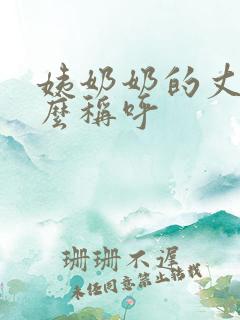 姨奶奶的丈
麽稱呼
珊珊不遲
未经同意禁止转载